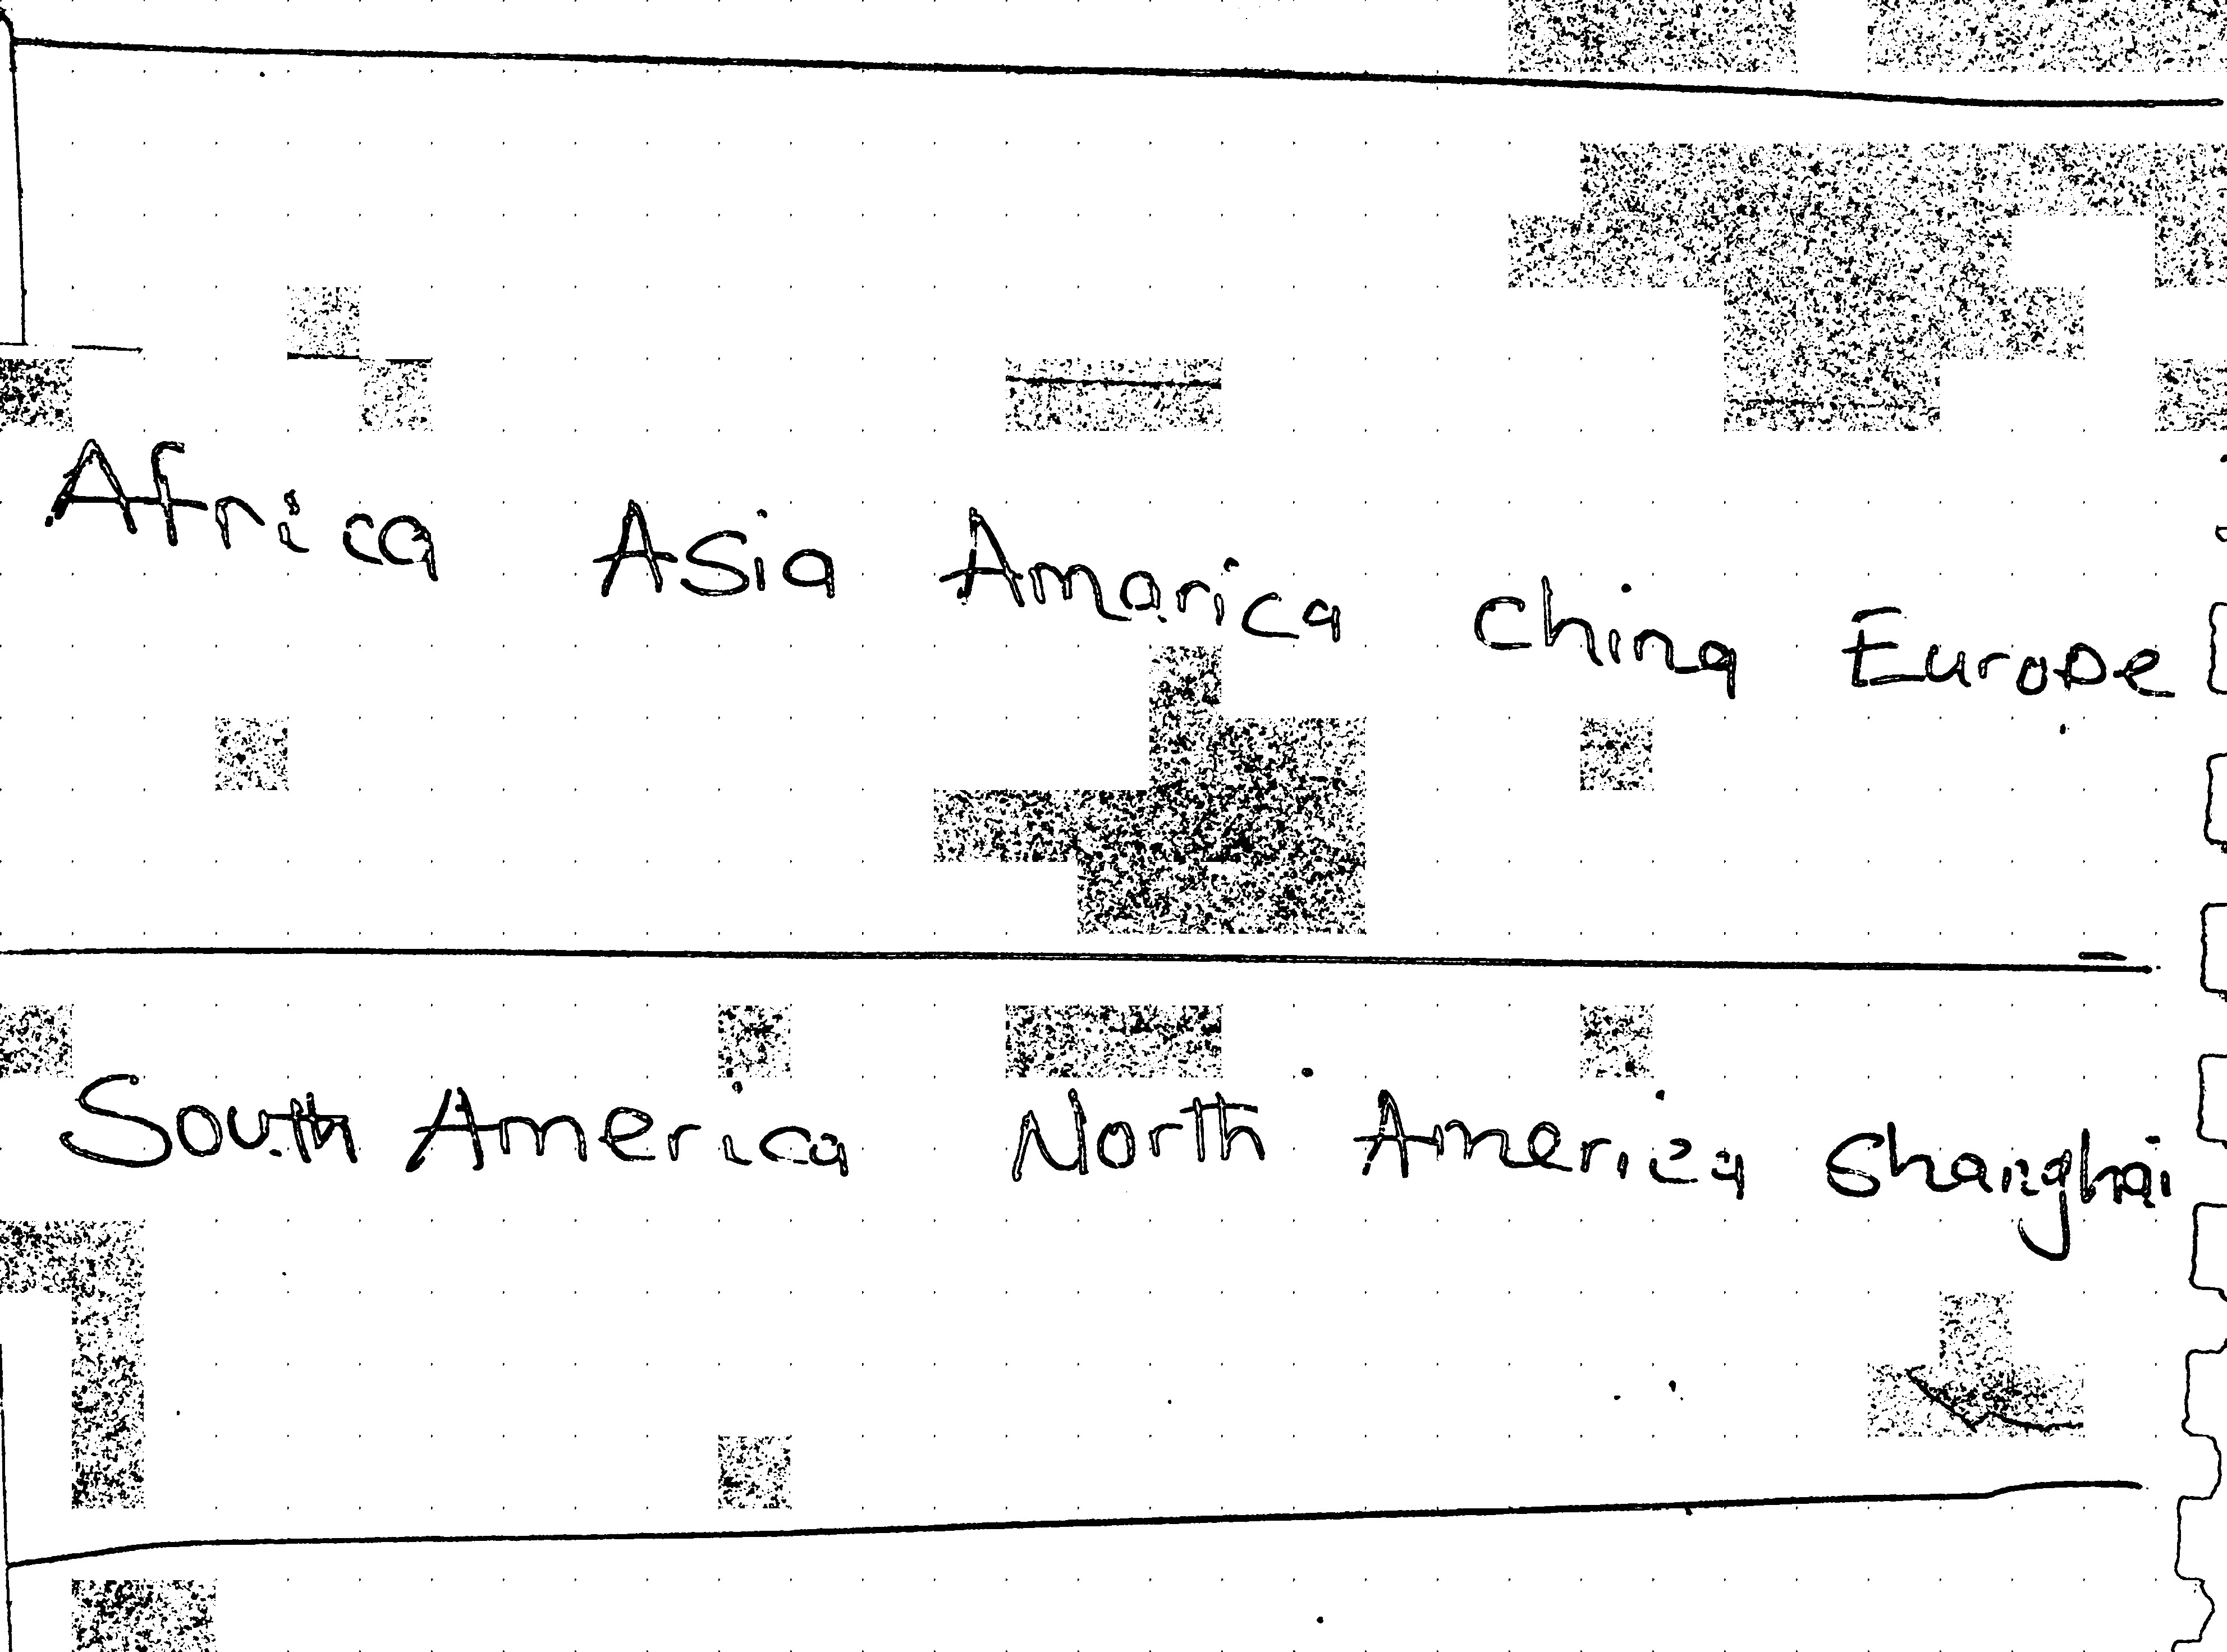 Africa Asia Amarica china Europe
South America North America Shanghai